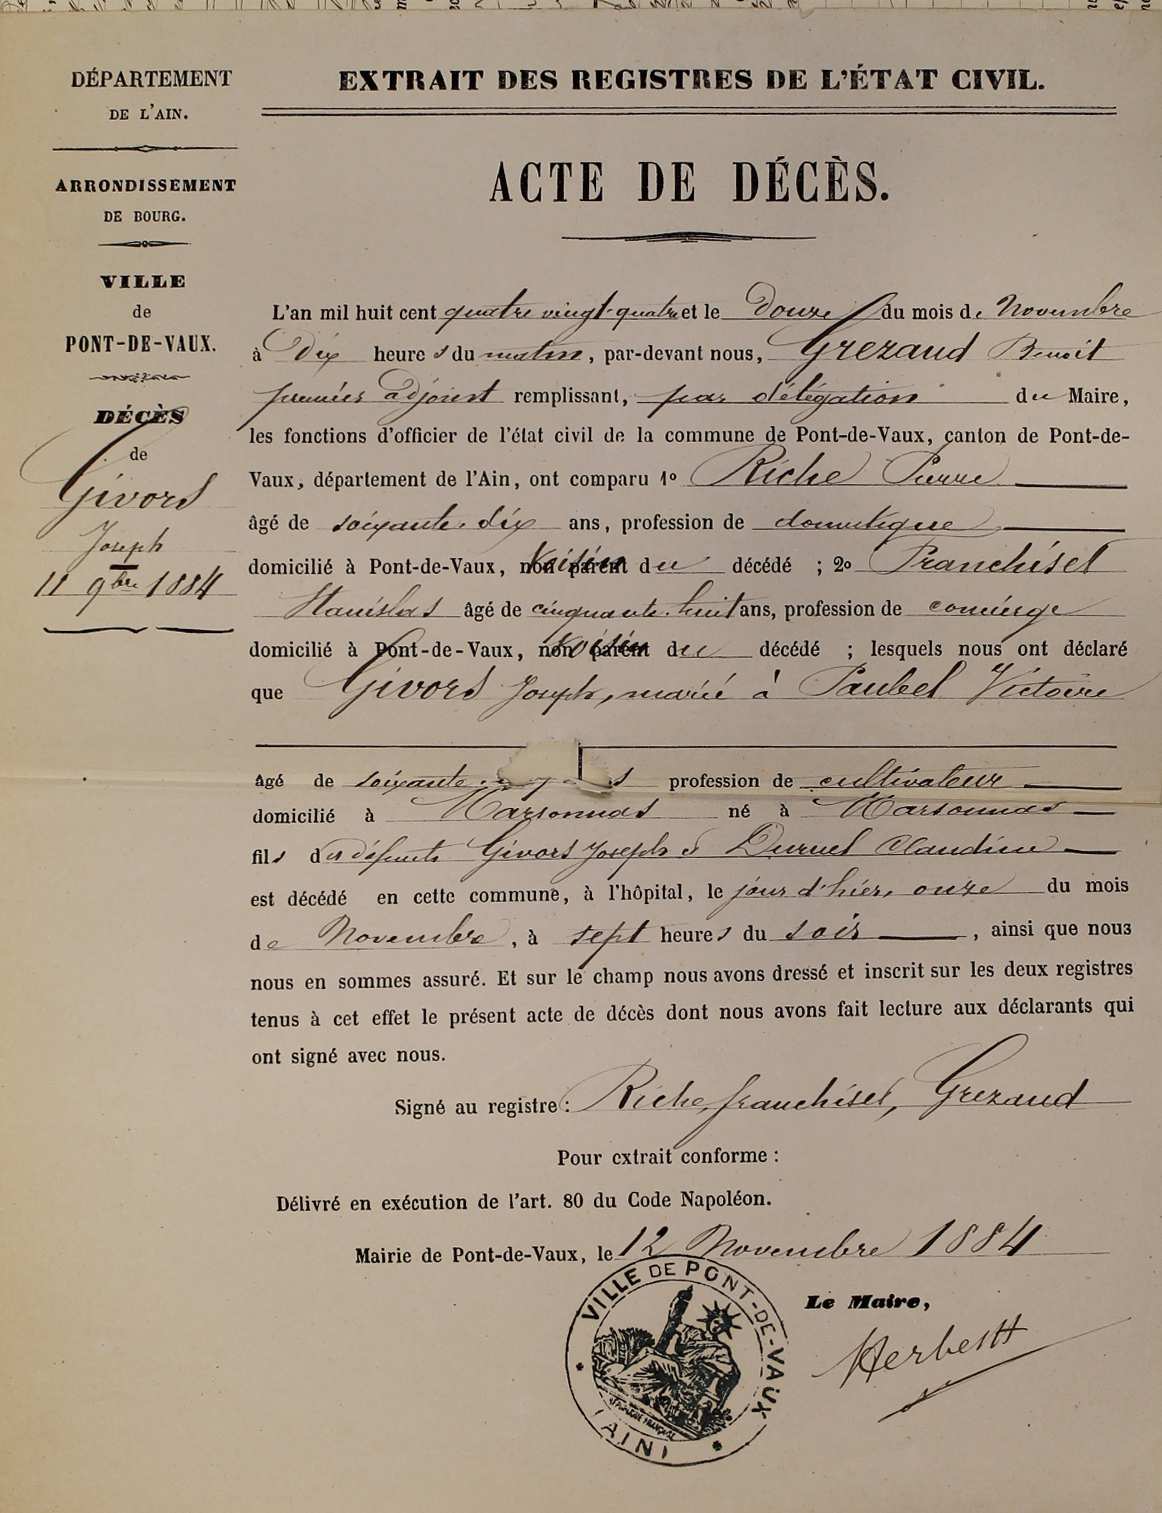 DÉPARTEMENT
DE L'AIN.
ARRONDISSEMENT
DE BOURG.
VILLE
de
PONT-DE-VAUX.
DÉCÈS
de
Givors
Joseph
11 9bre 1884
EXTRAIT DES REGISTRES DE L'ÉTAT CIVIL.
ACTE DE DÉCÈS.
L'an mil huit cent quatre vingt-quatre et le Douze du mois de Novembre
à Dix heures du matin, par-devant nous, Grezaud Benoit
premier adjoint remplissant, par délégation du Maire,
les fonctions d'officier de l'état civil de la commune de Pont-de-Vaux, canton de Pont-de-
Vaux, département de l'Ain, ont comparu 1º Riche Pierre
âgé de soixante-dix ans, profession de domestique
domicilié à Pont-de-Vaux, voisin du décédé ; 2º Franchiset
Stanislas âgé de cinquante-huit ans, profession de concierge
domicilié à Pont-de-Vaux, voisin du décédé ; lesquels nous ont déclaré
que Givors Joseph, marié à Paubel Victoire
âgé de soixante profession de cultivateur
domicilié à Marsonnas né à Marsonnas
fils des défunts Givors Joseph & Duruel Claudine
est décédé en cette commune, à l'hôpital, le jour d'hier, onze du mois
de Novembre, à sept heures du soir, ainsi que nous
nous en sommes assuré. Et sur le champ nous avons dressé et inscrit sur les deux registres
tenus à cet effet le présent acte de décès dont nous avons fait lecture aux déclarants qui
ont signé avec nous.
Signé au registre : Riche, franchiset, Grezaud
Pour extrait conforme :
Délivré en exécution de l'art. 80 du Code Napoléon.
Mairie de Pont-de-Vaux, le 12 Novembre 1884
Le Maire,
VILLE DE PONT-DE-VAUX
(AIN)